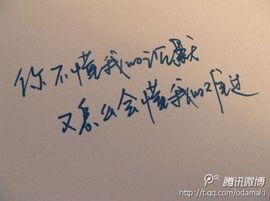 你不懂我的沉默
又怎么会懂我的难过
腾讯微博
http://t.qq.com/odamaki